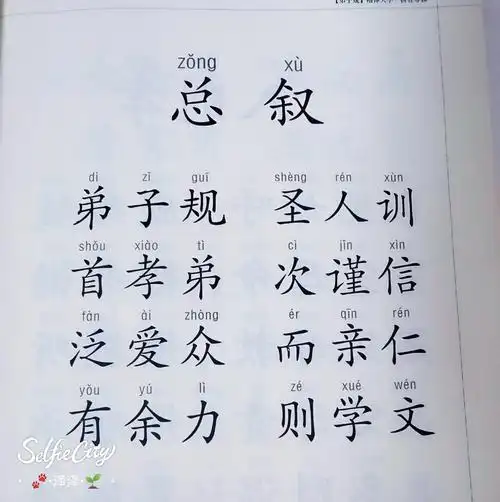 zǒng xù
总 叙
dì zǐ guī shèng rén xùn
弟 子 规 圣 人 训
shǒu xiào tì cì jǐn xìn
首 孝 弟 次 谨 信
fàn ài zhòng ér qīn rén
泛 爱 众 而 亲 仁
yǒu yú lì zé xué wén
有 余 力 则 学 文
SelfieCity